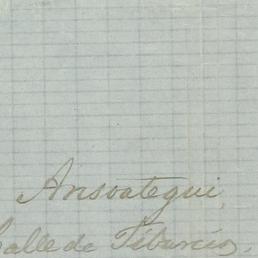 Ansoategui,
Calle de Tiburcio.